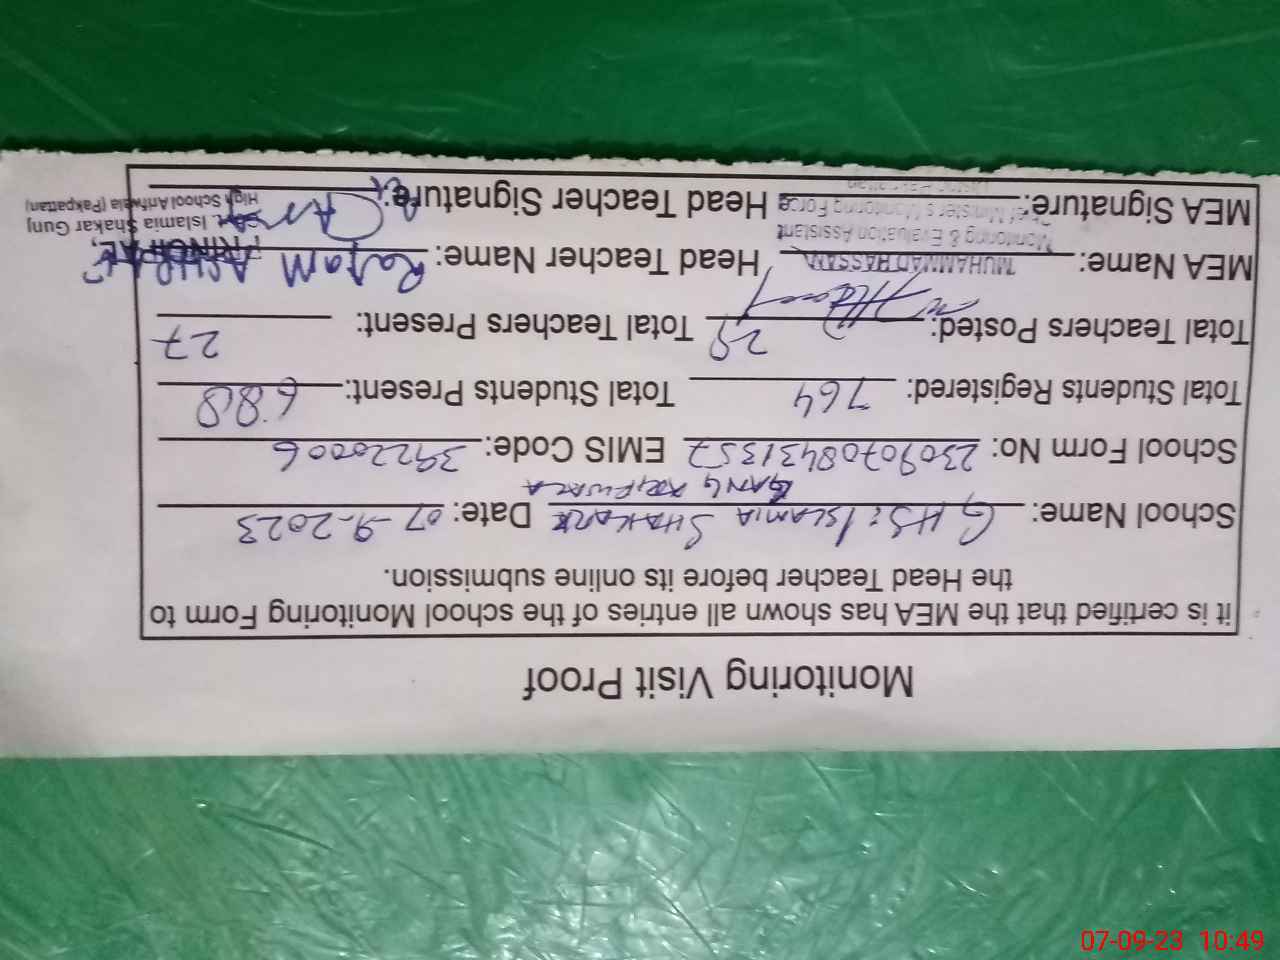 Monitoring Visit Proof
it is certified that the MEA has shown all entries of the school Monitoring Form to
the Head Teacher before its online submission.
School Name: GHS: ISLAMIA SHAKAR GANG ARIFWALA Date: 07-9-2023
School Form No: 2309070843135 EMIS Code: 39220006
Total Students Registered: 764 Total Students Present: 688
Total Teachers Posted: 29 Total Teachers Present: 27
MEA Name: MUHAMMAD HASSAN Head Teacher Name:
Monitoring & Evaluation Assistant PRINCIPAL,
Chief Minister's Monitoring Force Islamia Shakar Gunj
MEA Signature: Head Teacher Signature:
High School Arifwala (Pakpattan)
07-09-23 10:49